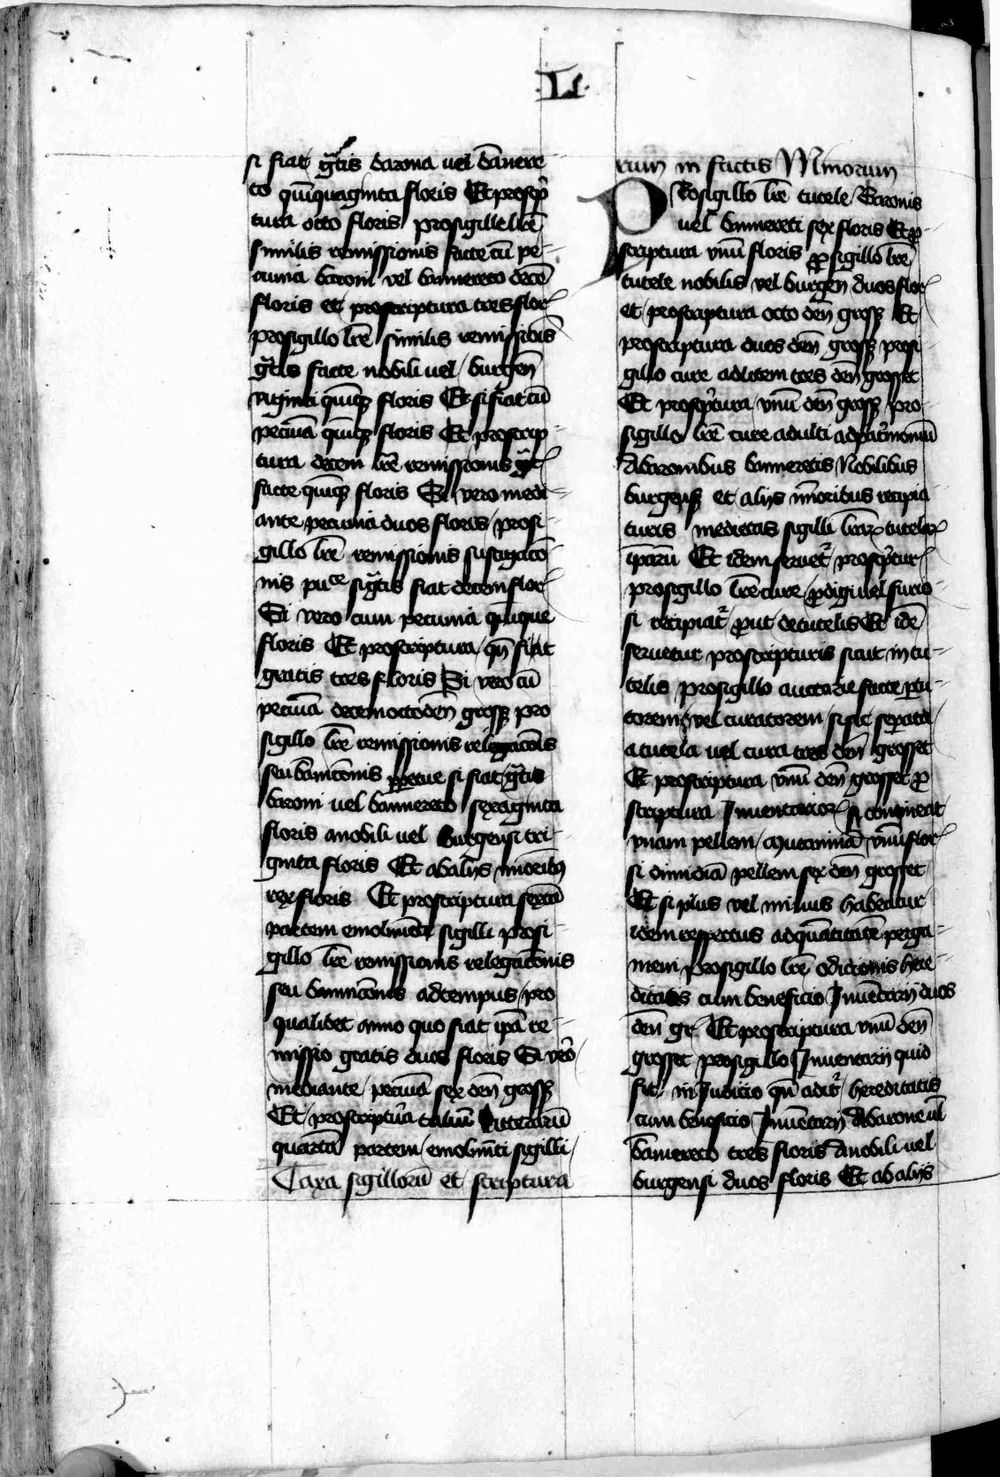 .LI.
si fiat gr̄tis barōia uel bāuere
to quīquaginta floris Et proscp̄
tura octo floris prosigillo lr̄e
similis remissionis facte cū pe
cunia baroni vel bannereto decē
floris et proscriptura tres flor
prosigillo lr̄e similis remissiōis
gr̄tis facte nobili uel burgen̄
viginti quīqꝫ floris Et si fiat cū
pecuīa quīqꝫ floris Et proscrip
tura decem lr̄e remissionis gr̄t
facte quīqꝫ floris Si vero medi
ante pecunia duos floris prosi
gillo lr̄e remissionis
nis si gr̄tis fiat decem flor
Si vero cum pecunia quīque
floris Et proscriptura qn̄ fiat
gratis tres floris Si vero cū
pecuīa decemocto den̄ grossꝫ pro
sigillo lr̄e remissionis relegacōis
seu bannicōnis ꝑpetue si fiat gr̄tis
baroni uel bannereto sexaginta
floris a nobili uel burgensi tri
ginta floris Et ab alijs mīoribꝫ
xex floris Et proscriptura sextā
partem emolumēti sigilli prosi
gillo lr̄e remissionis relegacōnis
seu bannicōnis ad tempus pro
qualibet anno quo fiat ip̄a re
missio gratis duos floris Si vero
mediante pecuīa sex den̄ grossꝫ
Et proscriptura talium litterarū
quartā partem emolumēti sigilli
Taxa sigillorū et scriptura
rum in factis Minorum
Prosigillo lr̄e tutele Baronis
uel bannereti sex floris Et ꝓ
scriptura vnū floris ꝓ sigillo lr̄e
tutele nobilis vel burgen̄ duos flor
et proscriptura octo den̄ grossꝫ Et
proscriptura duos den̄ grossꝫ prosi
gillo cure ad litem tres den̄ grosset
Et proscriptura vnū den̄ grossꝫ pro
sigillo lr̄e cure adulti ad patrimoniū
A baronibus banneretis Nobilibus
burgensꝫ et alijs mīoribus recipia
tur medietas sigilli lr̄aꝝ tutelaꝝ
ip̄arū Et idem seruetr̄ proscptur
prosigillo lr̄e cure ꝓdigi uel furio
si recipiatr̄ ꝓut de tutelis Et idē
seruetur proscripturis sicut in tu
telis prosigillo auctarie facte ꝑ tu
torem vel curatorem si sic seperata
a tutela uel cura tres den̄ grosset
Et proscriptura vnū den̄ grosset ꝓ
scriptura Inuentarior si contineat
vnam pellem vnū flor
si dimidiā pellem sex den̄ grosset
Et si plus vel minus habeatur
idem respectus ad quātitatē perga
meni prosigillo lr̄e adictionis here
ditatis cum beneficio Inuētarij duos
den̄ gr Et proscriptura vnū den̄
grosset prosigillo Inuentarij quid
fit in Judicio qn̄ aditr̄ hereditatis
cum beneficio Inuētarij A barone ul̄
bannereto tres floris A nobili uel
burgensi duos floris Et ab alijs